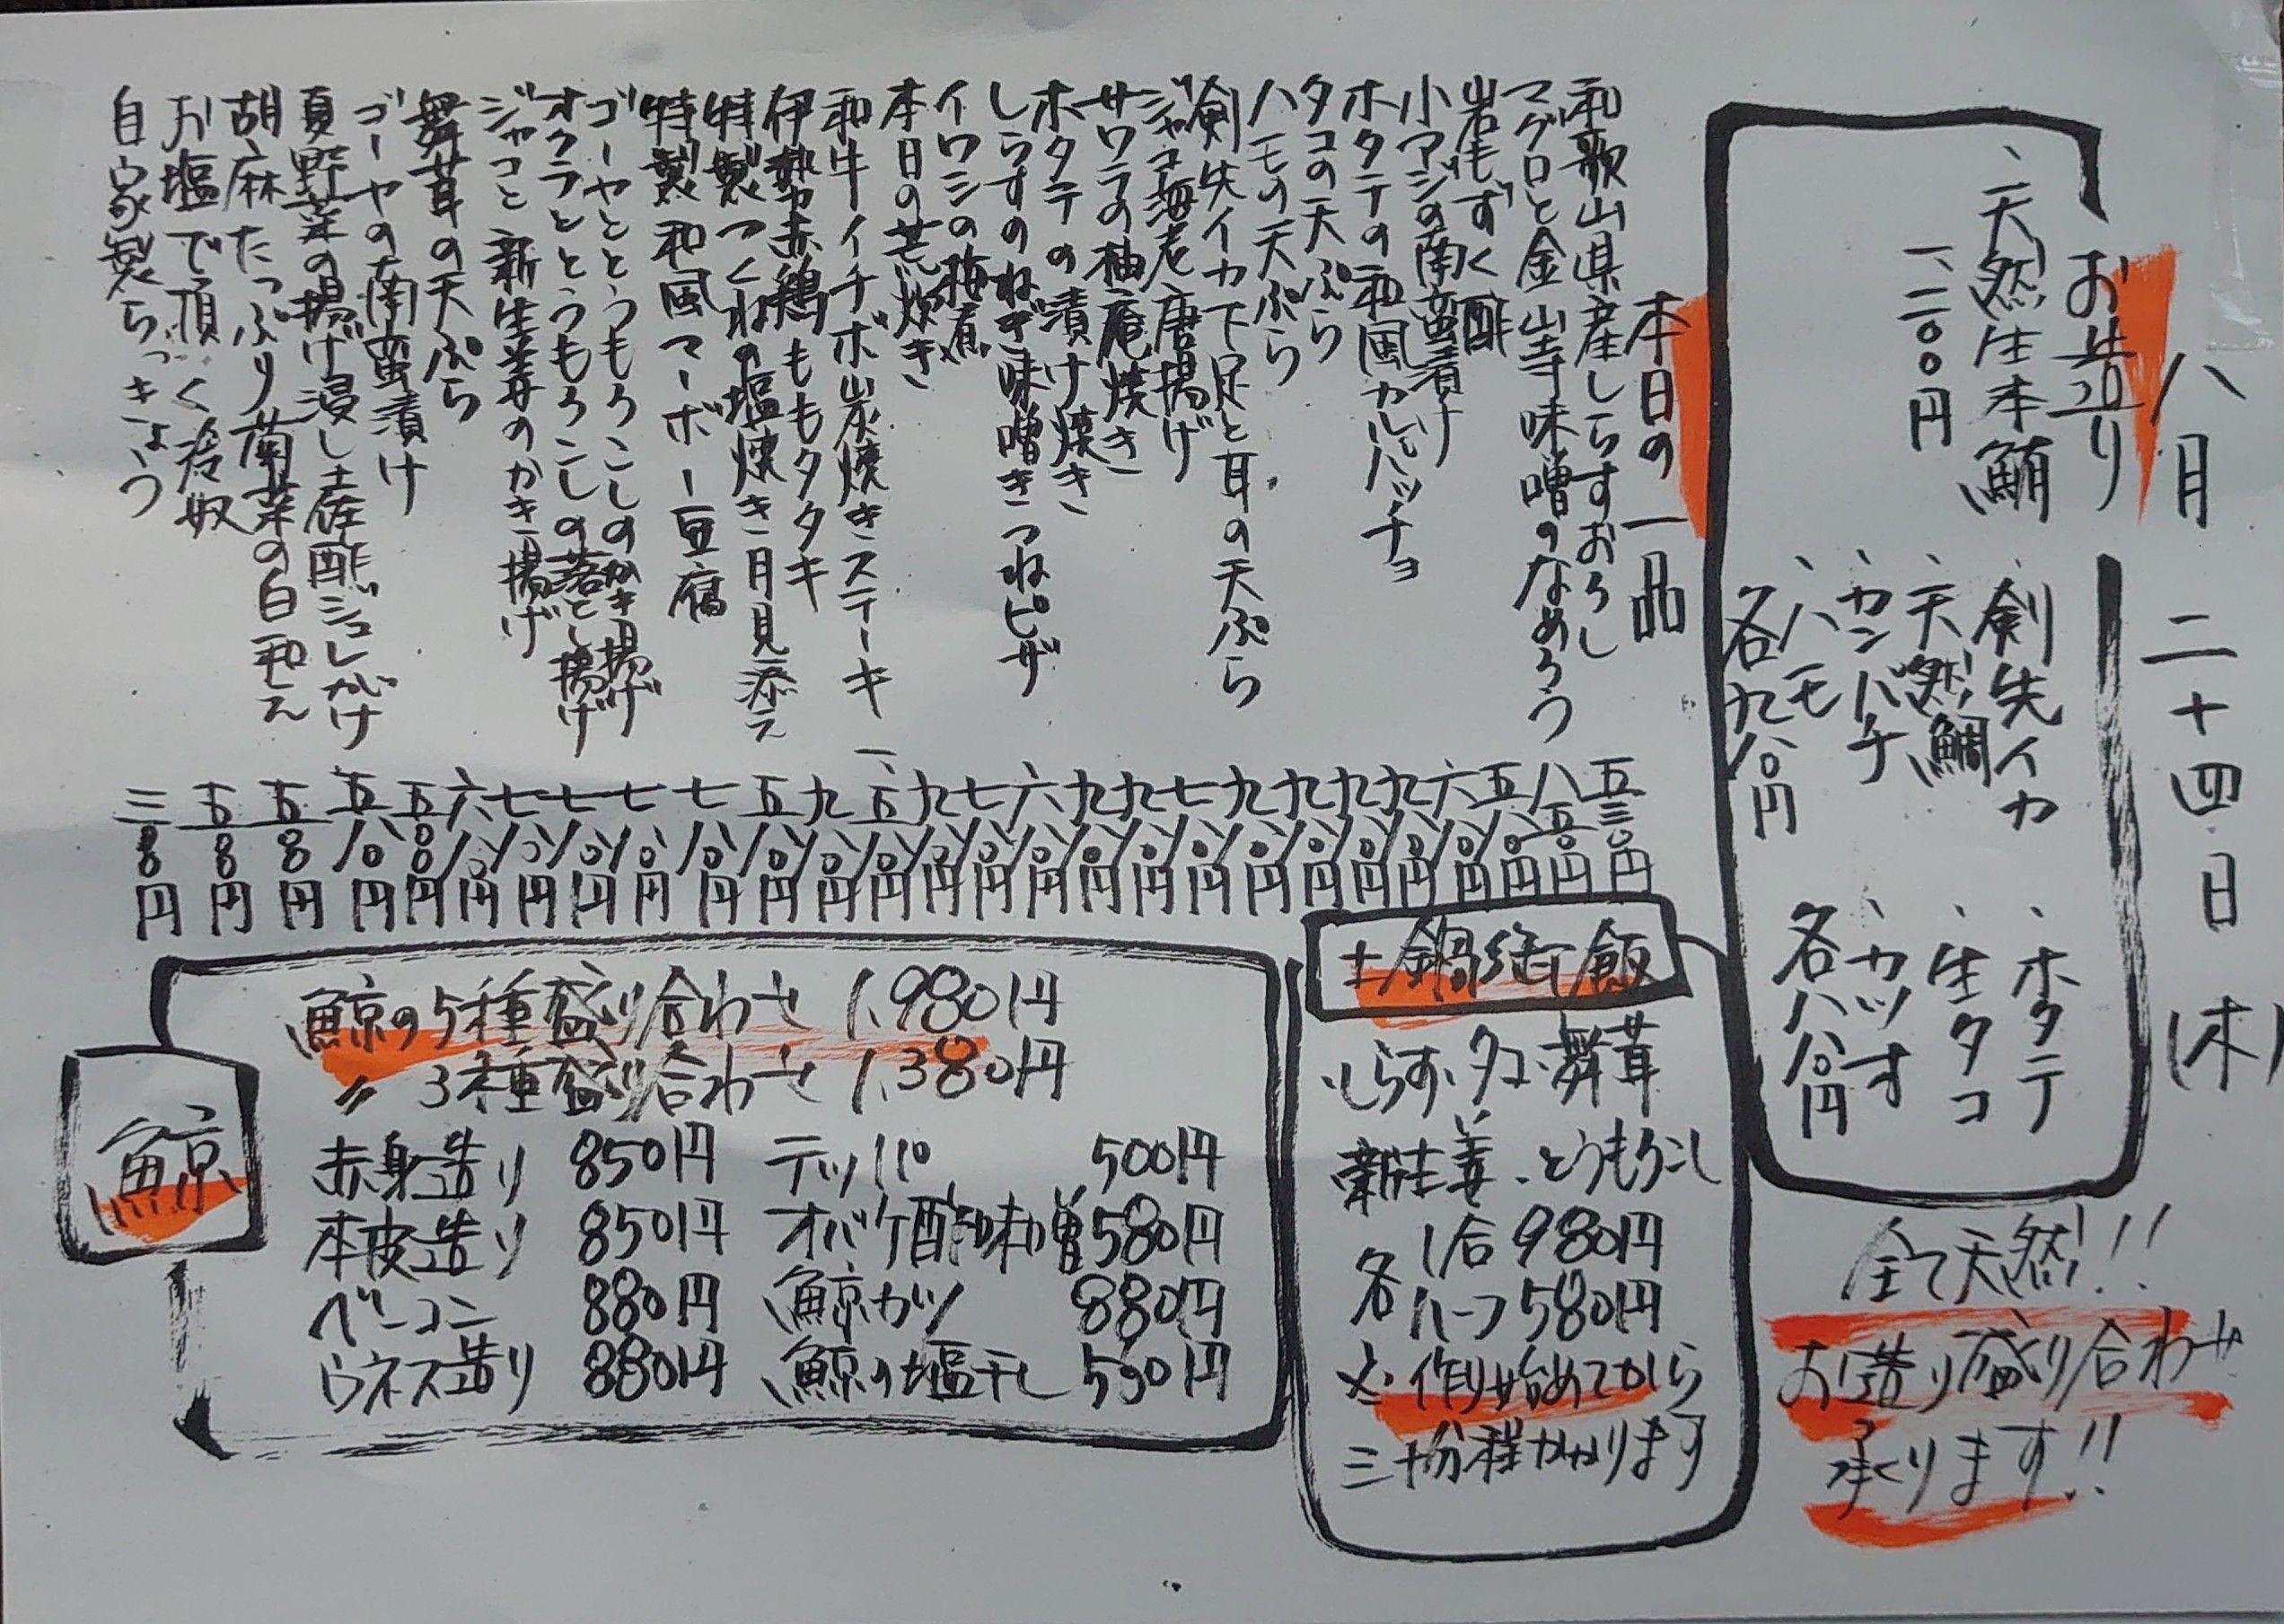 八月二十四日(木)
お造り
、天然生本鮪
一、二〇〇円
、剣先イカ
、天然鯛
、カンパチ
、ハモ
各九八〇円
、ホタテ
、生タコ
、カツオ
各八八〇円
全て天然!!
お造り盛り合わせ
承ります!!
本日の一品
和歌山県産しらすおろし 五三〇円
マグロと金山寺味噌のなめろう 八五〇円
岩もずく酢 五八〇円
小アジの南蛮漬け 六八〇円
ホタテの和風カルパッチョ 九八〇円
タコの天ぷら 九八〇円
ハモの天ぷら 九八〇円
剣先イカ下足と耳の天ぷら 九八〇円
ジャコ海老唐揚げ 七八〇円
サワラの柚庵焼き 九八〇円
ホタテの漬け焼き 九八〇円
しらすのねぎ味噌きつねピザ 六八〇円
イワシの梅煮 七八〇円
本日の荒炊き 九八〇円
和牛イチボ炭焼きステーキ 一、五八〇円
伊勢赤鶏ももタタキ 九八〇円
特製つくねの塩焼き月見添え 五八〇円
特製和風マーボー豆腐 七八〇円
ゴーヤととうもろこしのかき揚げ 七八〇円
オクラととうもろこしの落とし揚げ 七八〇円
ジャコと新生姜のかき揚げ 七八〇円
舞茸の天ぷら 六八〇円
ゴーヤの南蛮漬け 五〇〇円
夏野菜の揚げ浸し土佐酢ジュレがけ 五八〇円
胡麻たっぷり菊菜の白和え 五〇〇円
お塩で頂く冷奴 五〇〇円
自家製らっきょう 三〇〇円
土鍋御飯
・しらす・タコ・舞茸
新生姜・とうもろこし
各 1合 980円
ハーフ 580円
※作り始めてから
三十分程かかります
鯨
鯨の5種盛り合わせ 1,980円
〃 3種盛り合わせ 1,380円
赤身造り 850円 テッパ 500円
本皮造り 850円 オバケ酢味噌 580円
ベーコン 880円 鯨カツ 880円
ウネス造り 880円 鯨の塩干し 590円